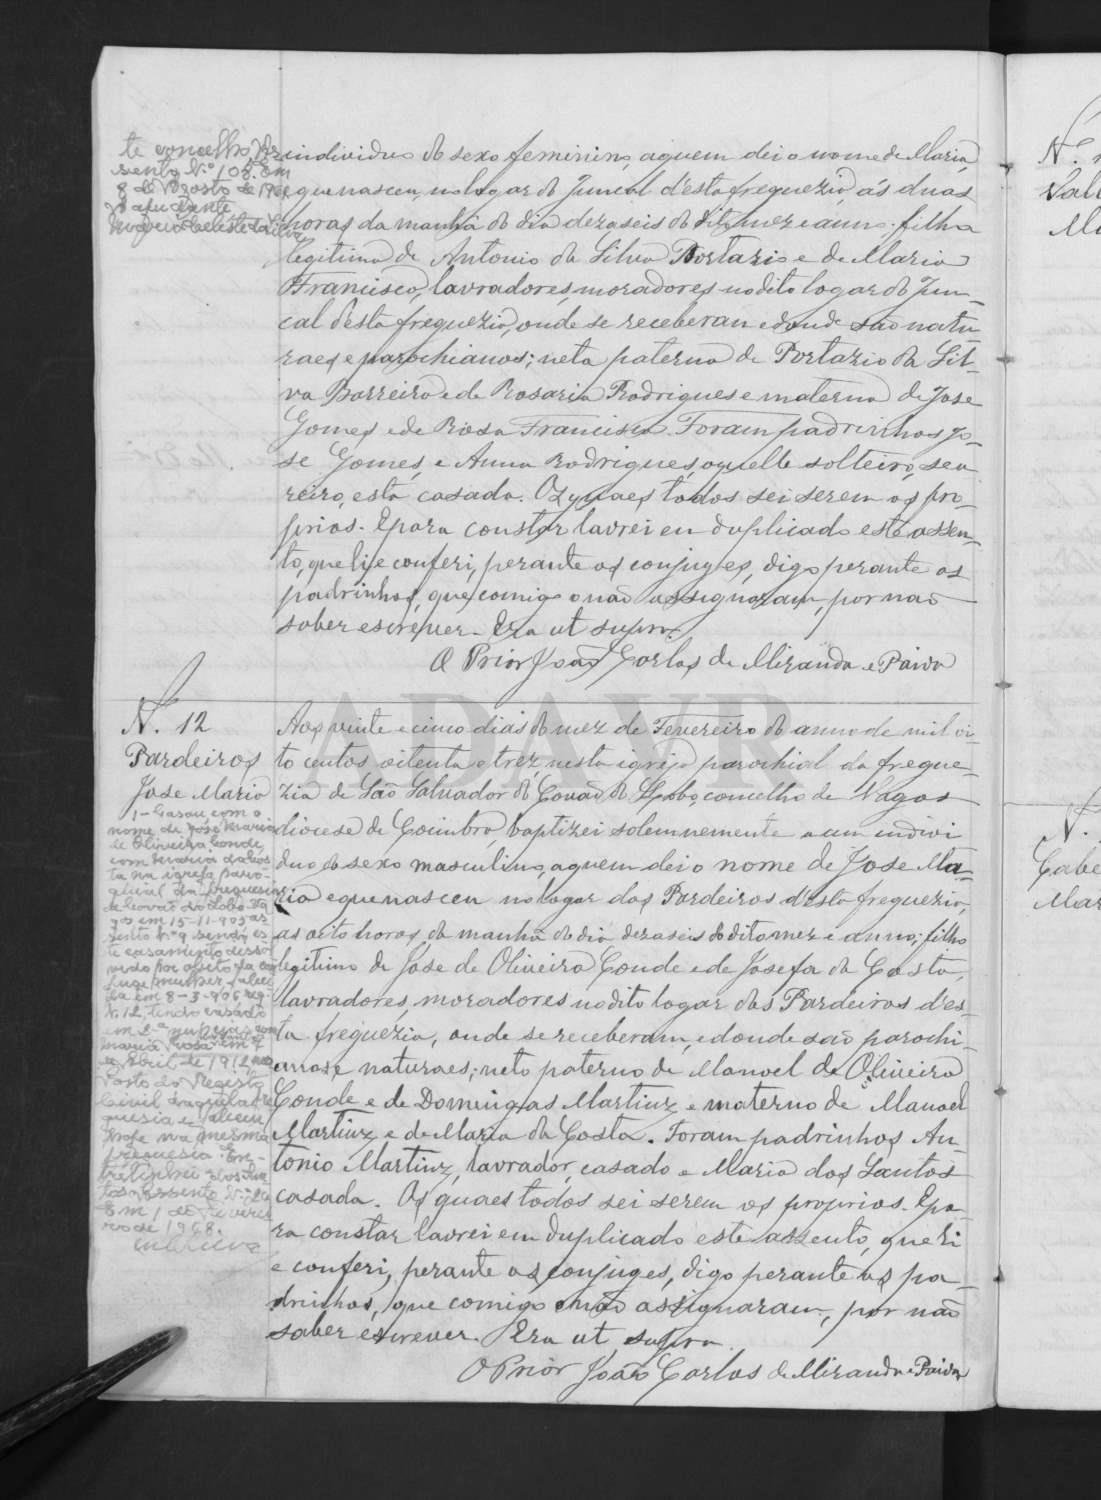 te concelho As
sento Nº 108. Em
8 de Agosto de 19
O ajudante
Maria Celeste da Silva
individuo do sexo feminino, aquem dei o nome de Maria,
e que nasceu, no logar do Juncal d'esta freguezia, ás duas
horas da manhã do dia dezaseis do dito mez e anno. filha
legitima de Antonio da Silva Portazio e de Maria
Francisca, lavradores, moradores no dito logar do Jun-
cal d'esta freguezia, onde se receberam e donde são natu
raes e parochianos; neta paterna de Portazio da Sil-
va Barreiro e de Rosaria Rodrigues e materna de Jose
Gomes e de Rosa Francisca. Foram padrinhos Jo-
se Gomes, e Anna Rodrigues, aquelle solteiro, sea
reiro, esta casada. Os quaes todos sei serem os pro-
prios. E para constar lavrei em duplicado este assen-
to, que li e conferi, perante os conjuges, digo perante os
padrinhos, que comigo o não assignaram, por não
saber escrever. Era ut supra.
O Prior João Carlos de Miranda e Paiva
N. 12
Pardeiros
Jose Maria
1 - Casou com o
nome de José Maria
de Oliveira Conde,
com Maria da Cos
ta na igreja paro-
quial da freguesia
de Covão do Lobo Va
gos em 15-11-905 as
sento Nº 9 sendo es
te casamento dissol
vido por obito da con
juge mulher, faleci
da em 8-3-906 reg.
Nº 12, tendo casado
em 2as nupcias com
Maria Rosa em 7
de Abril de 1912 no
Posto do Registo
Civil daquela fre
guesia e faleceu
hoje na mesma
freguesia. Em
Assento Nº
Em 1 de Feverei
ro de 1968.
Aos vinte e cinco dias do mez de Fevereiro do anno de mil oi-
to centos oitenta e trez, nesta igreja parochial da fregue-
zia de São Salvador do Covão do Lobo, concelho de Vagos
diocese de Coimbra baptizei solemnemente a um indivi
duo do sexo masculino, aquem dei o nome de Jose Ma-
ria e que nasceu no logar dos Pardeiros d'esta freguezia,
as oito horas da manhã do dia dezaseis do dito mez e anno; filho
legitimo de Jose de Oliveira Conde e de Josefa da Costa,
lavradores, moradores no dito logar dos Pardeiros d'es-
ta freguezia, onde se receberam, e donde são parochi-
anos e naturaes; neto paterno de Manoel de Oliveira
Conde e de Domingas Martinz e materno de Manoel
Martinz e de Maria da Costa. Foram padrinhos An-
tonio Martinz, lavrador, casado e Maria dos Santos
casada. Os quaes todos sei serem os proprios. E pa-
ra constar lavrei em duplicado este assento, que li
e conferi, perante os conjuges, digo perante os pa-
drinhos, que comigo o não assignaram, por não
saber escrever. Era ut supra.
O Prior João Carlos de Miranda e Paiva
ADAVR